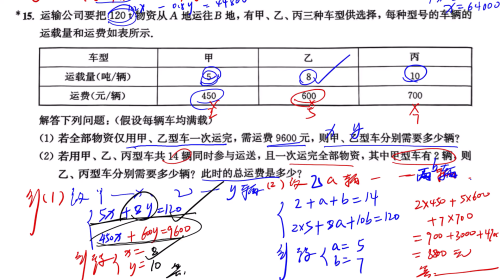 *15. 运输公司要把120 t物资从A地运往B地，有甲、乙、丙三种车型供选择，每种型号的车辆的
运载量和运费如表所示.
车型 甲 乙 丙
运载量(吨/辆) 5 8 10
运费(元/辆) 450 600 700
解答下列问题：(假设每辆车均满载)
(1) 若全部物资仅用甲、乙型车一次运完，需运费9600元，则甲、乙型车分别需要多少辆？
(2) 若用甲、乙、丙型车共14辆同时参与运送，且一次运完全部物资，其中甲型车有2辆，则
乙、丙型车分别需要多少辆？此时的总运费是多少？
(1)
5x + 8y = 120
450x + 60y = 9600
x = 8
y = 10
(2)
2 + a + b = 14
2×5 + 8a + 10b = 120
a = 5
b = 7
2×450 + 5×600
+ 7×700
= 900 + 3000